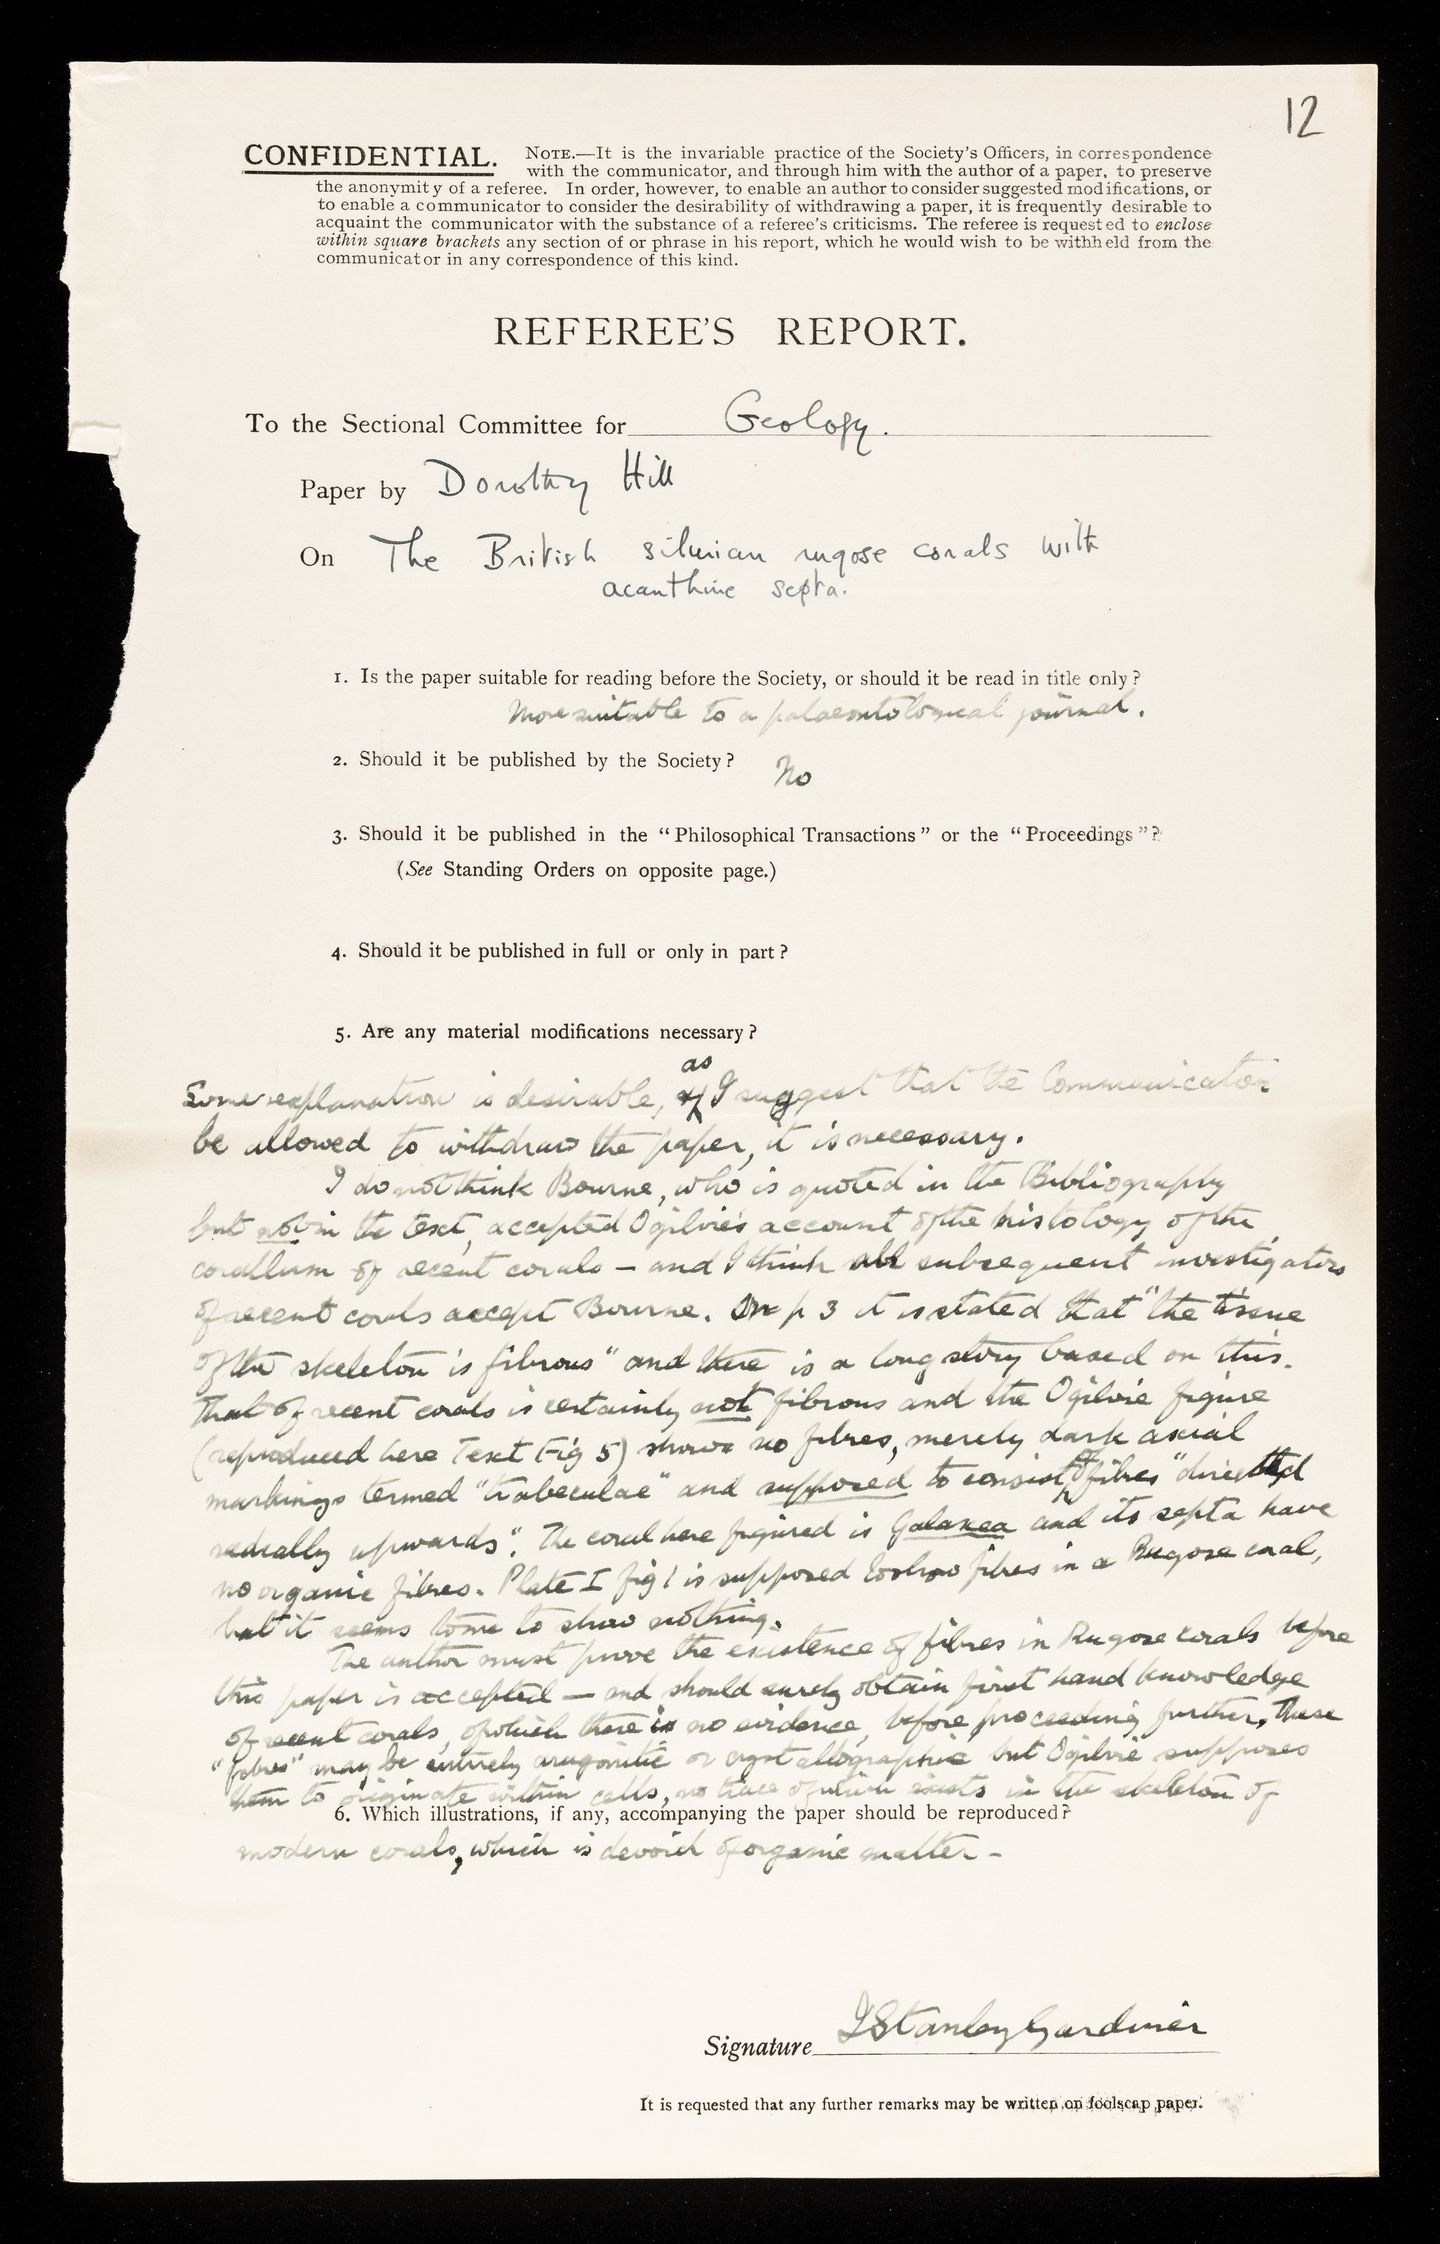 12
CONFIDENTIAL. NOTE.—It is the invariable practice of the Society's Officers, in correspondence
with the communicator, and through him with the author of a paper, to preserve
the anonymity of a referee. In order, however, to enable an author to consider suggested modifications, or
to enable a communicator to consider the desirability of withdrawing a paper, it is frequently desirable to
acquaint the communicator with the substance of a referee's criticisms. The referee is requested to enclose
within square brackets any section of or phrase in his report, which he would wish to be withheld from the
communicator in any correspondence of this kind.
REFEREE'S REPORT.
To the Sectional Committee for Geology.
Paper by Dorothy Hill
On The British silurian rugose corals with
acanthine septa.
1. Is the paper suitable for reading before the Society, or should it be read in title only?
More suitable to a palaeontological journal.
2. Should it be published by the Society? No
3. Should it be published in the "Philosophical Transactions" or the "Proceedings"?
(See Standing Orders on opposite page.)
4. Should it be published in full or only in part?
5. Are any material modifications necessary?
as
Some explanation is desirable, if I suggest that the Communicator
be allowed to withdraw the paper, it is necessary.
I do not think Bourne, who is quoted in the Bibliography
but not in the text, accepted Ogilvie's account of the histology of the
corallum of recent corals – and I think all subsequent investigators
of recent corals accept Bourne. On p 3 it is stated that "the tissue
of the skeleton is fibrous" and there is a long story based on this.
That of recent corals is certainly not fibrous and the Ogilvie figure
(reproduced here Text Fig 5) shows no fibres, merely dark axial
markings termed "trabeculae" and supposed to consist of fibres "directed
radially upwards". The coral here figured is Galaxea and its septa have
no organic fibres. Plate I fig 1 is supposed to show fibres in a Rugose coral,
but it seems to me to show nothing.
The author must prove the existence of fibres in Rugose corals before
this paper is accepted – and should surely obtain first hand knowledge
of recent corals, of which there is no evidence, before proceeding further. These
"fibres" may be entirely aragonitic or crystallographic but Ogilvie supposes
them to originate within cells, no trace of which exists in the skeleton of
6. Which illustrations, if any, accompanying the paper should be reproduced?
modern corals, which is devoid of organic matter –
Signature J Stanley Gardiner
It is requested that any further remarks may be written on foolscap paper.